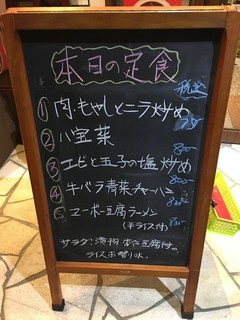 本日の定食
税込
① 肉もやしとニラ炒め
② 八宝菜 800
③ エビと玉子の塩炒め
④ 牛バラ青菜チャーハン 800
⑤ マーボー豆腐ラーメン 800
(半ライス付)
サラダ 漬物 杏仁豆腐付
ライスお替りok.